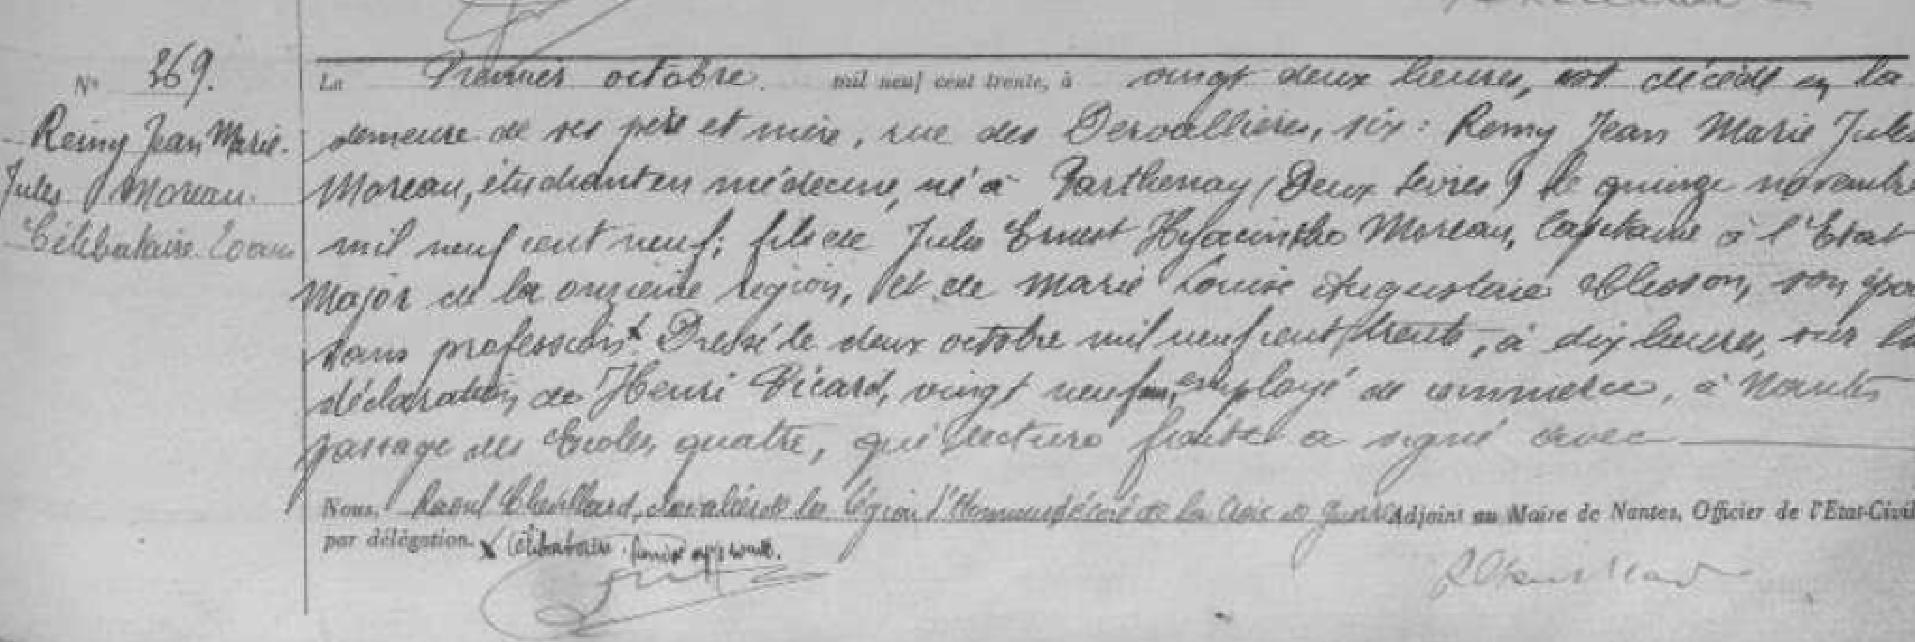 N° 369.
Le Premier octobre mil neuf cent trente, à vingt deux heures, est décédé en la
Remy Jean Marie
Jules Moreau
Célibataire 20 ans
demeure de ses père et mère, rue des Dervallières, six : Remy Jean Marie Jules
Moreau, étudiant en médecine, né à Parthenay (Deux Sèvres) le quinze novembre
mil neuf cent neuf; fils de Jules Ernest Hyacinthe Moreau, Capitaine à l'Etat
Major de la onzième région, et de Marie Louise Augustine, son épou
sans profession x. Dressé le deux octobre mil neuf cent trente, à dix heures, sur la
déclaration de Henri Picard, vingt neuf ans, employé de commerce, à Nantes
passage des Ecoles, quatre, qui lecture faite a signé avec
Nous, Raoul, chevalier de la Légion d'Honneur, décoré de la Croix de Guerre Adjoint au Maire de Nantes, Officier de l'Etat-Civil
par délégation. x Célibataire.